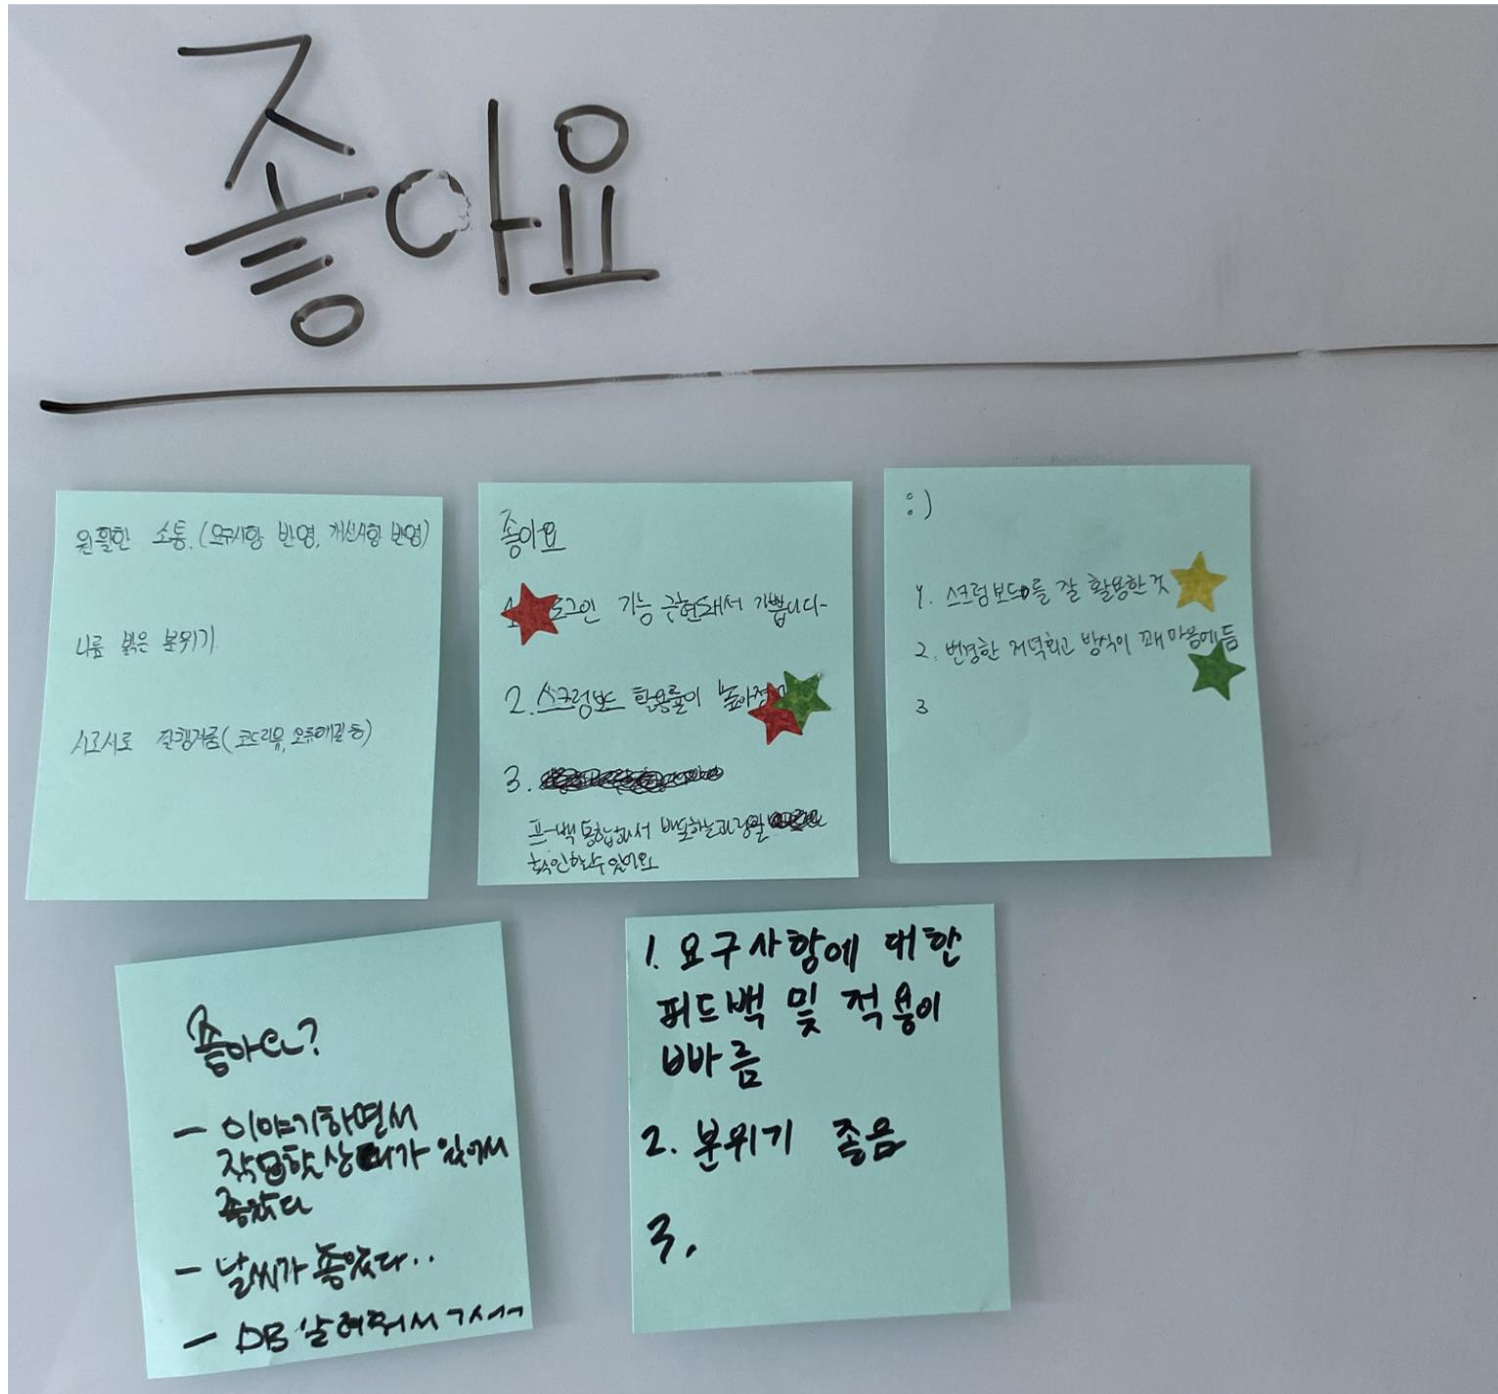 좋아요
원활한 소통. (요구사항 반영, 개선사항 반영)
나름 밝은 분위기
서로서로 잘챙겨줌(코드리뷰, 오류해결 등)
좋아요
로그인 기능 구현돼서 기쁩니다~
2. 스크럼보드 활용률이 높아졌
3.
프-백 통합해서 배포하는과정을
확인할수있어요
:)
1. 스크럼보드를 잘 활용한 것
2. 변경한 저녁회고 방식이 꽤 마음에듦
3
좋아요?
- 이야기하면서
작업할 상대가 있어서
좋았다
- 날씨가 좋았다..
- DB 살려줘서 ㄱㅅㄱㄱ
1. 요구사항에 대한
피드백 및 적용이
빠름
2. 분위기 좋음
3.